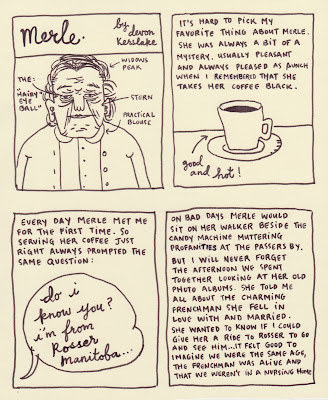 Merle.
by devon
kerslake
WIDOWS
PEAK
THE:
"HAIRY
EYE
BALL"
STERN
PRACTICAL
BLOUSE
IT'S HARD TO PICK MY
FAVORITE THING ABOUT MERLE.
SHE WAS ALWAYS A BIT OF A
MYSTERY, USUALLY PLEASANT
AND ALWAYS PLEASED AS PUNCH
WHEN I REMEMBERED THAT SHE
TAKES HER COFFEE BLACK.
good
and hot!
EVERY DAY MERLE MET ME
FOR THE FIRST TIME. SO
SERVING HER COFFEE JUST
RIGHT ALWAYS PROMPTED THE
SAME QUESTION:
do i
know you?
i'm from
Rosser
Manitoba...
ON BAD DAYS MERLE WOULD
SIT ON HER WALKER BESIDE THE
CANDY MACHINE MUTTERING
PROFANITIES AT THE PASSERS BY.
BUT I WILL NEVER FORGET
THE AFTERNOON WE SPENT
TOGETHER LOOKING AT HER OLD
PHOTO ALBUMS. SHE TOLD ME
ALL ABOUT THE CHARMING
FRENCHMAN SHE FELL IN
LOVE WITH AND MARRIED.
SHE WANTED TO KNOW IF I COULD
GIVE HER A RIDE TO ROSSER TO GO
AND SEE HIM...IT FELT GOOD TO
IMAGINE WE WERE THE SAME AGE,
THE FRENCHMAN WAS ALIVE AND
THAT WE WEREN'T IN A NURSING HOME